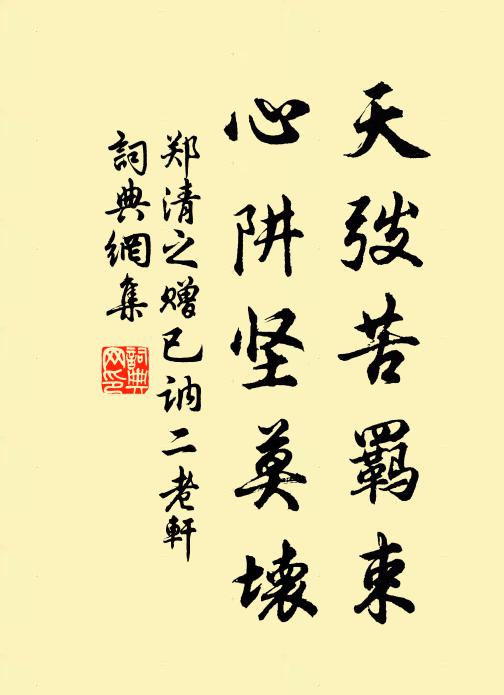 天弢苦羁束
心阱坚莫坏
郑清之赠已讷二老軒
詞典網集
詞典网印